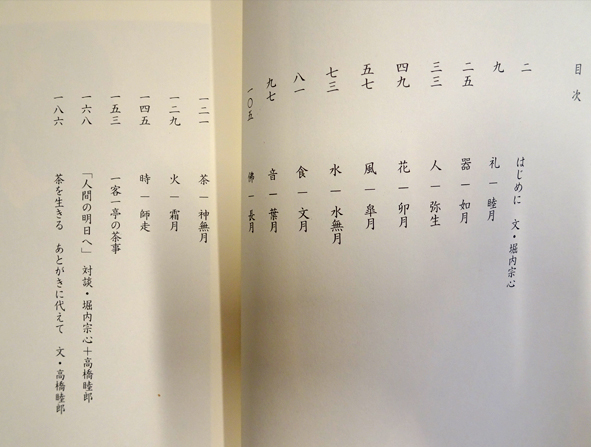 目次
二 はじめに 文・堀内宗心
九 礼―睦月
二五 器―如月
三三 人―弥生
四九 花―卯月
五七 風―皐月
七三 水―水無月
八一 食―文月
九七 音―葉月
一〇五 佛―長月
一二一 茶―神無月
一二九 火―霜月
一四五 時―師走
一五三 一客一亭の茶事
一六八 「人間の明日へ」 対談・堀内宗心+高橋睦郎
一八六 茶を生きる あとがきに代えて 文・高橋睦郎